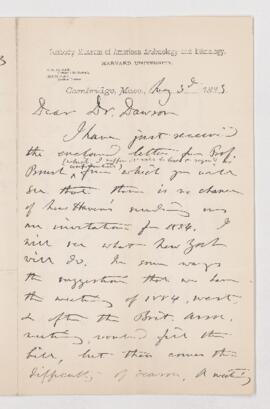 Peabody Museum of American Archæology and Ethnology,
HARVARD UNIVERSITY.
Cambridge, Mass., Aug 3d 1883
Dear Dr. Dawson
I have just received
the enclosed letter from Prof.
from which you will
see that there is no chance
of New Haven's sending us
an invitation for 1884. I
will see what New York
will do. In some ways
the suggestion that we have
the meeting of 1884, west
& after the Brit. Assoc.
meeting, would fill the
bill, but then comes the
difficulty of season. A meeting